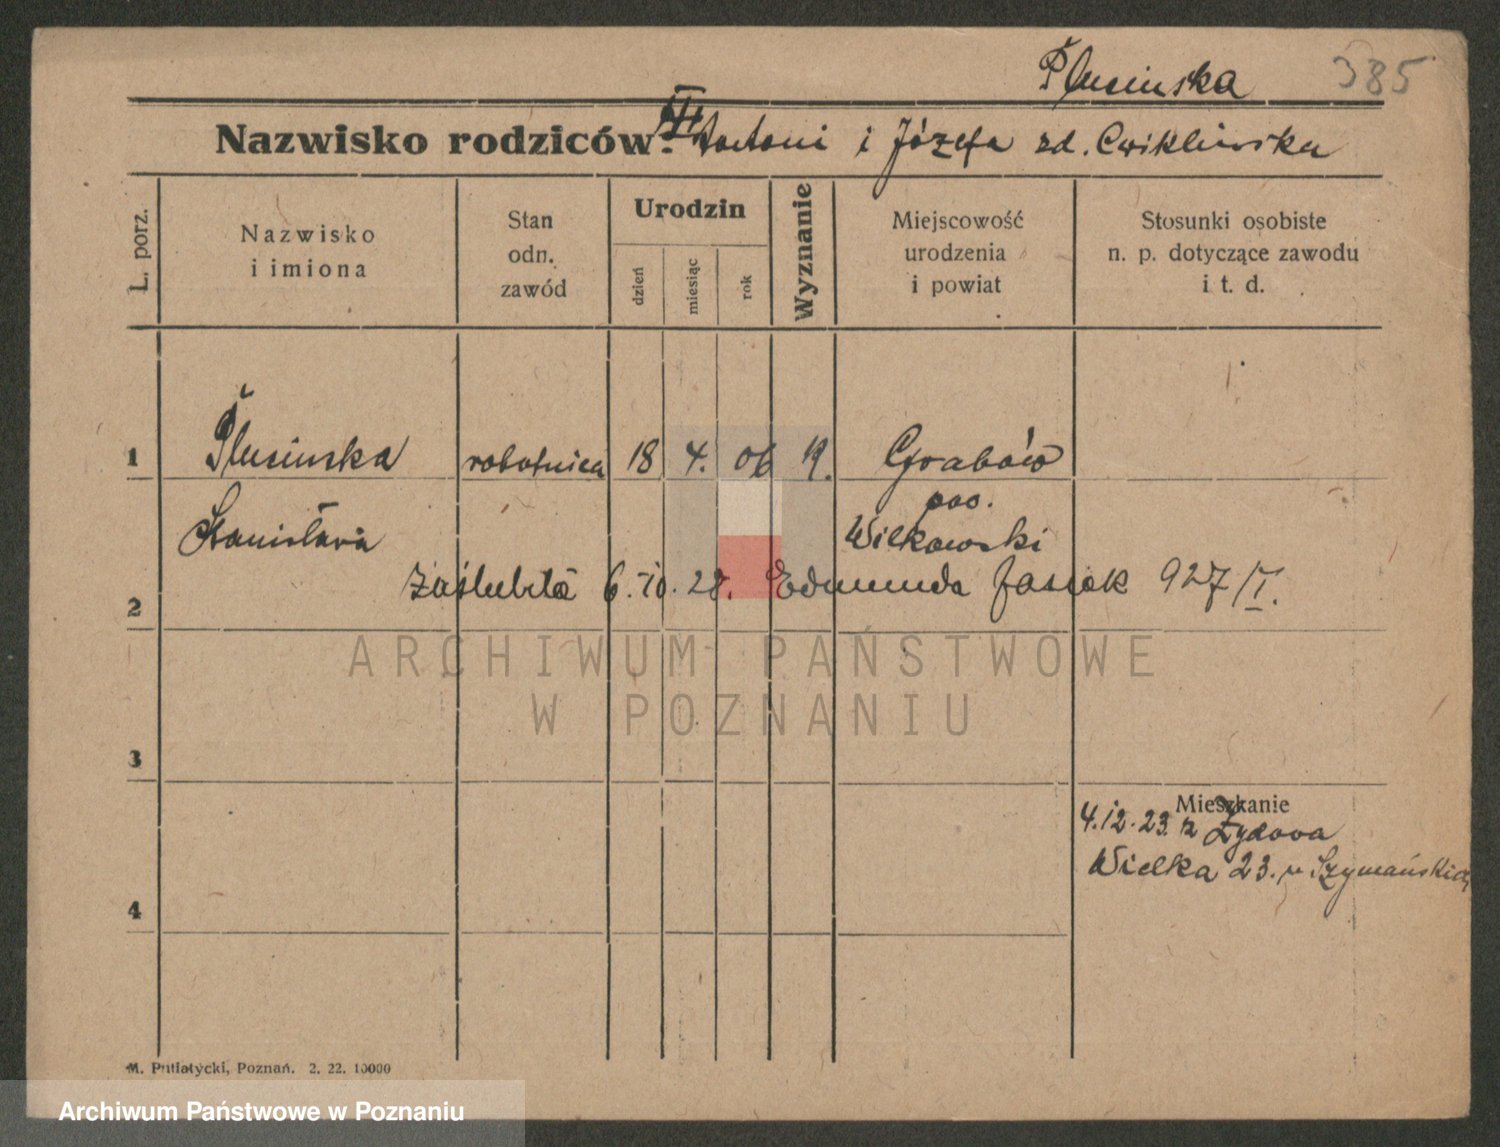 Plusinska 385
Nazwisko rodziców: Antoni i Józefa zd. Cwiklinska
L. porz.
Nazwisko
i imiona
Stan
odn.
zawód
Urodzin
dzień
miesiąc
rok
Wyznanie
Miejscowość
urodzenia
i powiat
Stosunki osobiste
n. p. dotyczące zawodu
i t. d.
1 Plusinska robotnica 18 4. 06 Grabów
pow.
Stanisława Wilkowski
2 zaślubiła 6.10.28. Edmunda Jasiak 927/I.
ARCHIWUM PAŃSTWOWE
W POZNANIU
3
Mieszkanie
4.12.23 z Żydowa
Wielka 23. u Szymańskich
4
M. Putiatycki, Poznań. 2. 22. 10000
Archiwum Państwowe w Poznaniu